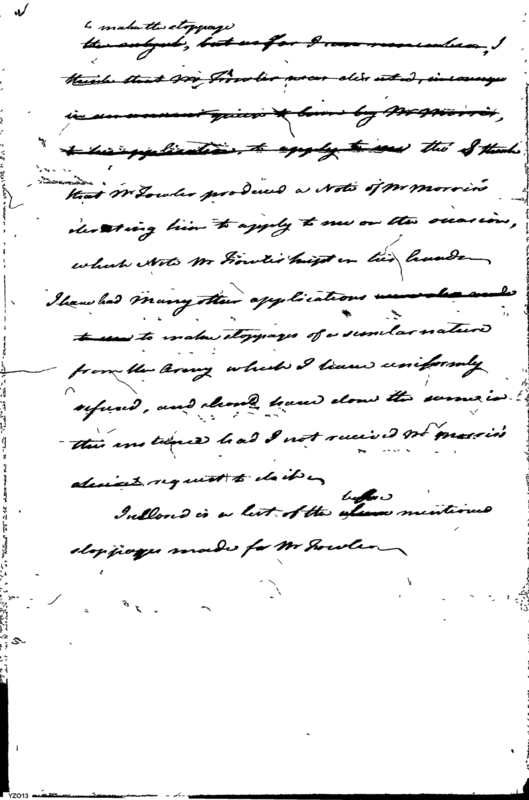 to make the stoppage
the subject, but as far I can remember, I
think that Mr. Fowler was directed,
in an by Mr Morris,
to his application, to apply to me the I think
that Mr Fowler produced a Note of Mr Morris's
directing him to apply to me on the occasion,
which Note Mr Fowler kept in his hands
I have had Many other applications
to me to make stoppages of a similar nature
from the Army which I have uniformly
refused, and should have done the same in
this instance had I not received Mr Morris's
request to do it
before
Inclosed is a list of the above mentioned
stoppages made for Mr Fowler
YZO13